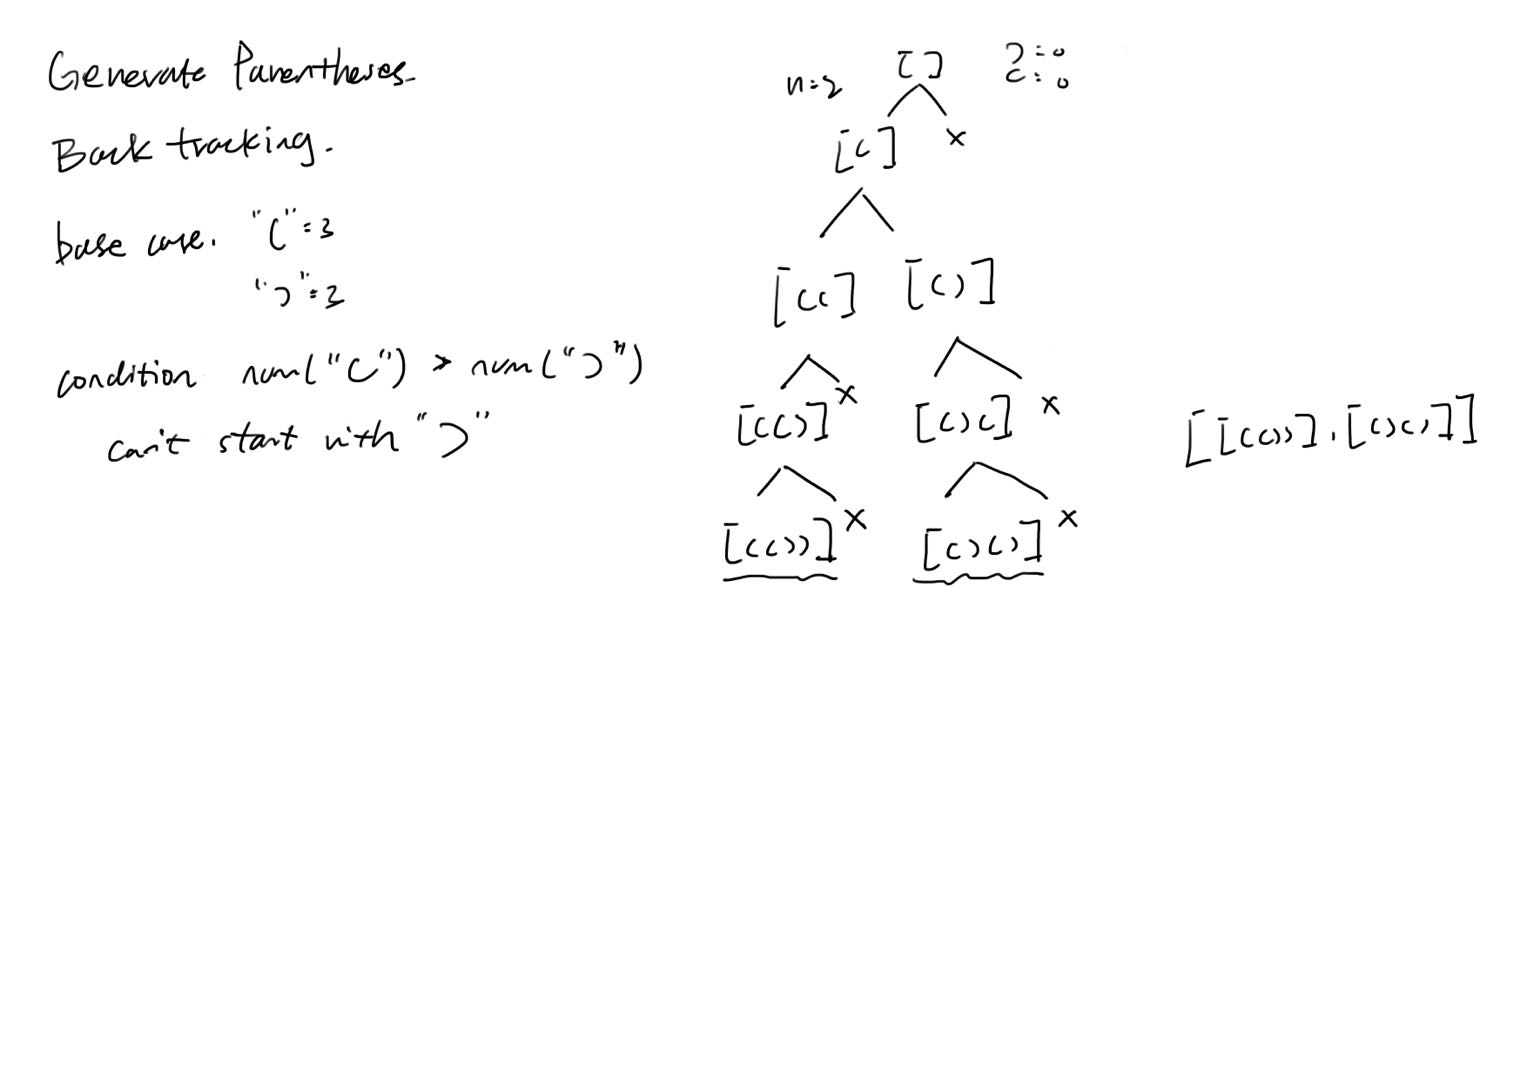 Generate Parentheses.
Back tracking.
base case. "(" = 3
")" = 3
condition num("(") > num(")")
can't start with ")"
n=2 [ ] ) = 0
( = 0
[(] x
[((] [()]
[(()] x [()(] x
[(())] x [()()] x
[[(())], [()()]]